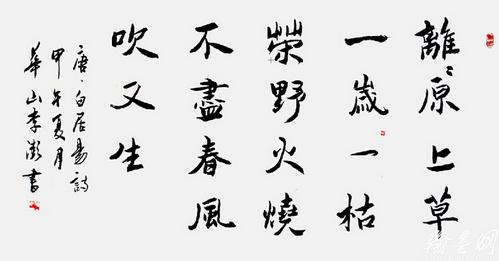 離〻原上草
一歲一枯
榮野火燒
不盡春風
吹又生
唐·白居易詩
甲午夏月
華山李書
翰墨网